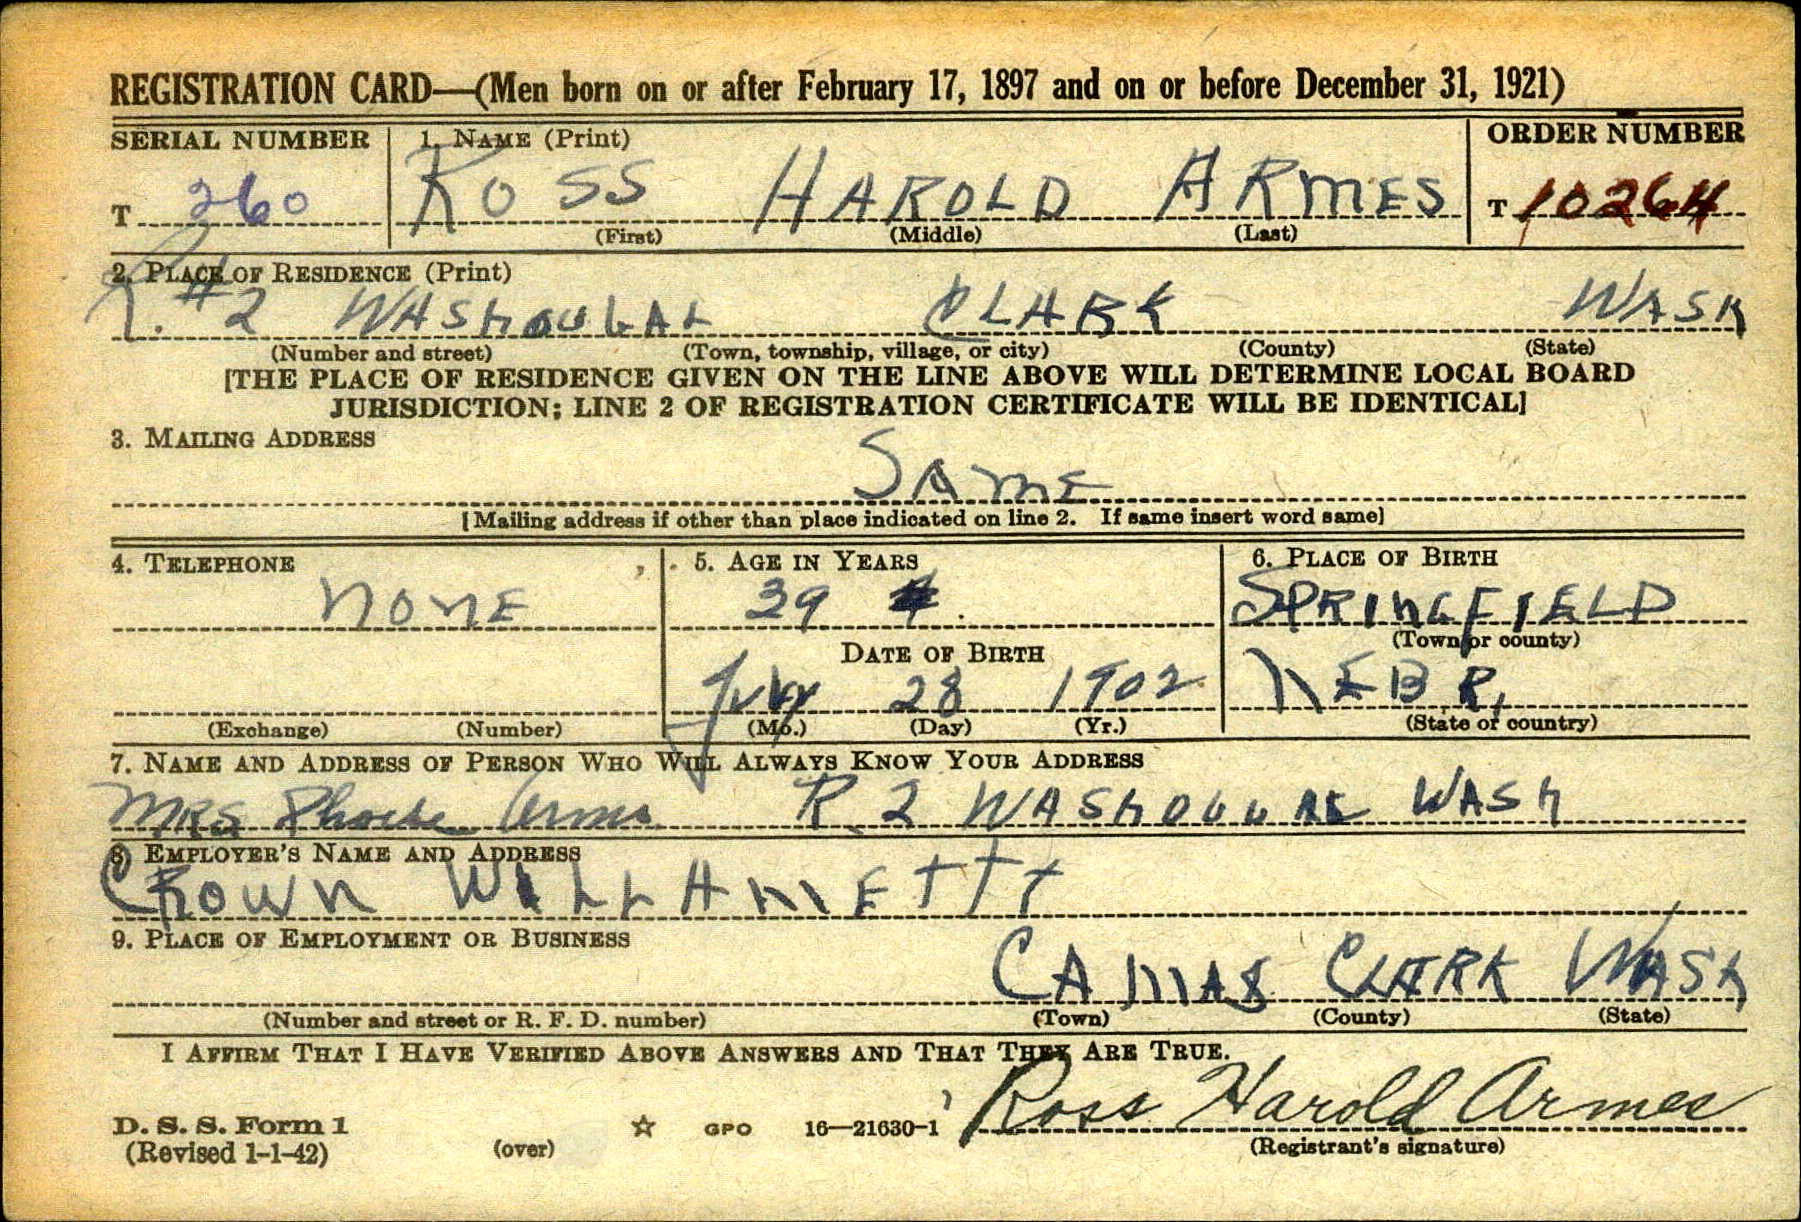 REGISTRATION CARD—(Men born on or after February 17, 1897 and on or before December 31, 1921)
SERIAL NUMBER 1. NAME (Print) ORDER NUMBER
T 260 ROSS HAROLD ARMES T 10264
(First) (Middle) (Last)
2. PLACE OF RESIDENCE (Print)
R. #2 WASHOUGAL CLARK WASH
(Number and street) (Town, township, village, or city) (County) (State)
[THE PLACE OF RESIDENCE GIVEN ON THE LINE ABOVE WILL DETERMINE LOCAL BOARD
JURISDICTION; LINE 2 OF REGISTRATION CERTIFICATE WILL BE IDENTICAL]
3. MAILING ADDRESS
SAME
[Mailing address if other than place indicated on line 2. If same insert word same]
4. TELEPHONE 5. AGE IN YEARS 6. PLACE OF BIRTH
NONE 39 SPRINGFIELD
(Town or county)
DATE OF BIRTH
July 28 1902 NEBR.
(Exchange) (Number) (Mo.) (Day) (Yr.) (State or country)
7. NAME AND ADDRESS OF PERSON WHO WILL ALWAYS KNOW YOUR ADDRESS
MRS Phoebe Armes R 2 WASHOUGAL WASH
8. EMPLOYER'S NAME AND ADDRESS
CROWN WILLAMETTE
9. PLACE OF EMPLOYMENT OR BUSINESS
CAMAS CLARK WASH
(Number and street or R. F. D. number) (Town) (County) (State)
I AFFIRM THAT I HAVE VERIFIED ABOVE ANSWERS AND THAT THEY ARE TRUE.
Ross Harold Armes
D. S. S. Form 1 ☆ GPO 16—21630-1
(Revised 1-1-42) (over) (Registrant's signature)